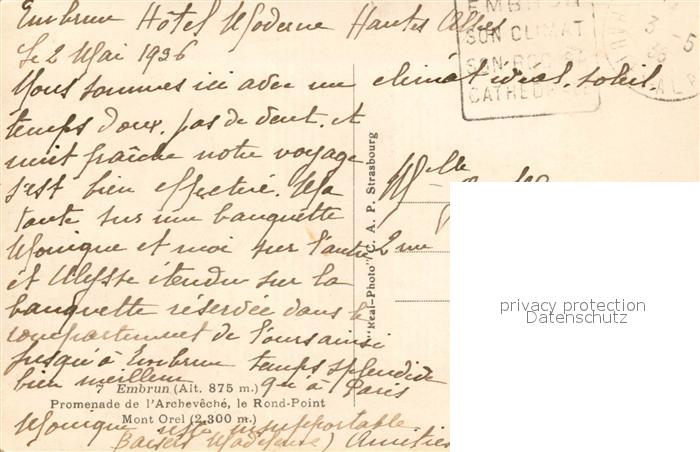 Embrun Hôtel Moderne Hautes Alpes
le 2 Mai 1936
Nous sommes ici avec un climat idéal, soleil,
temps doux, pas de vent, et
nuit fraîche notre voyage
s'est bien effectué. Ma
tante sur une banquette
Monique et moi sur l'autre
et Ulysse étendu sur la
banquette réservée dans le
compartiment de
jusqu'à Embrun temps splendide
bien meilleur qu'à Paris
Monique reste insupportable.
Baisers Madeleine) Amitiés
7 Embrun (Alt. 875 m.)
Promenade de l'Archevêché, le Rond-Point
Mont Orel (2.300 m.)
"Real-Photo" C. A. P. Strasbourg
EMBRUN
SON CLIMAT
SON ROC
CATHEDRALE
Mlle
2 rue
privacy protection
Datenschutz